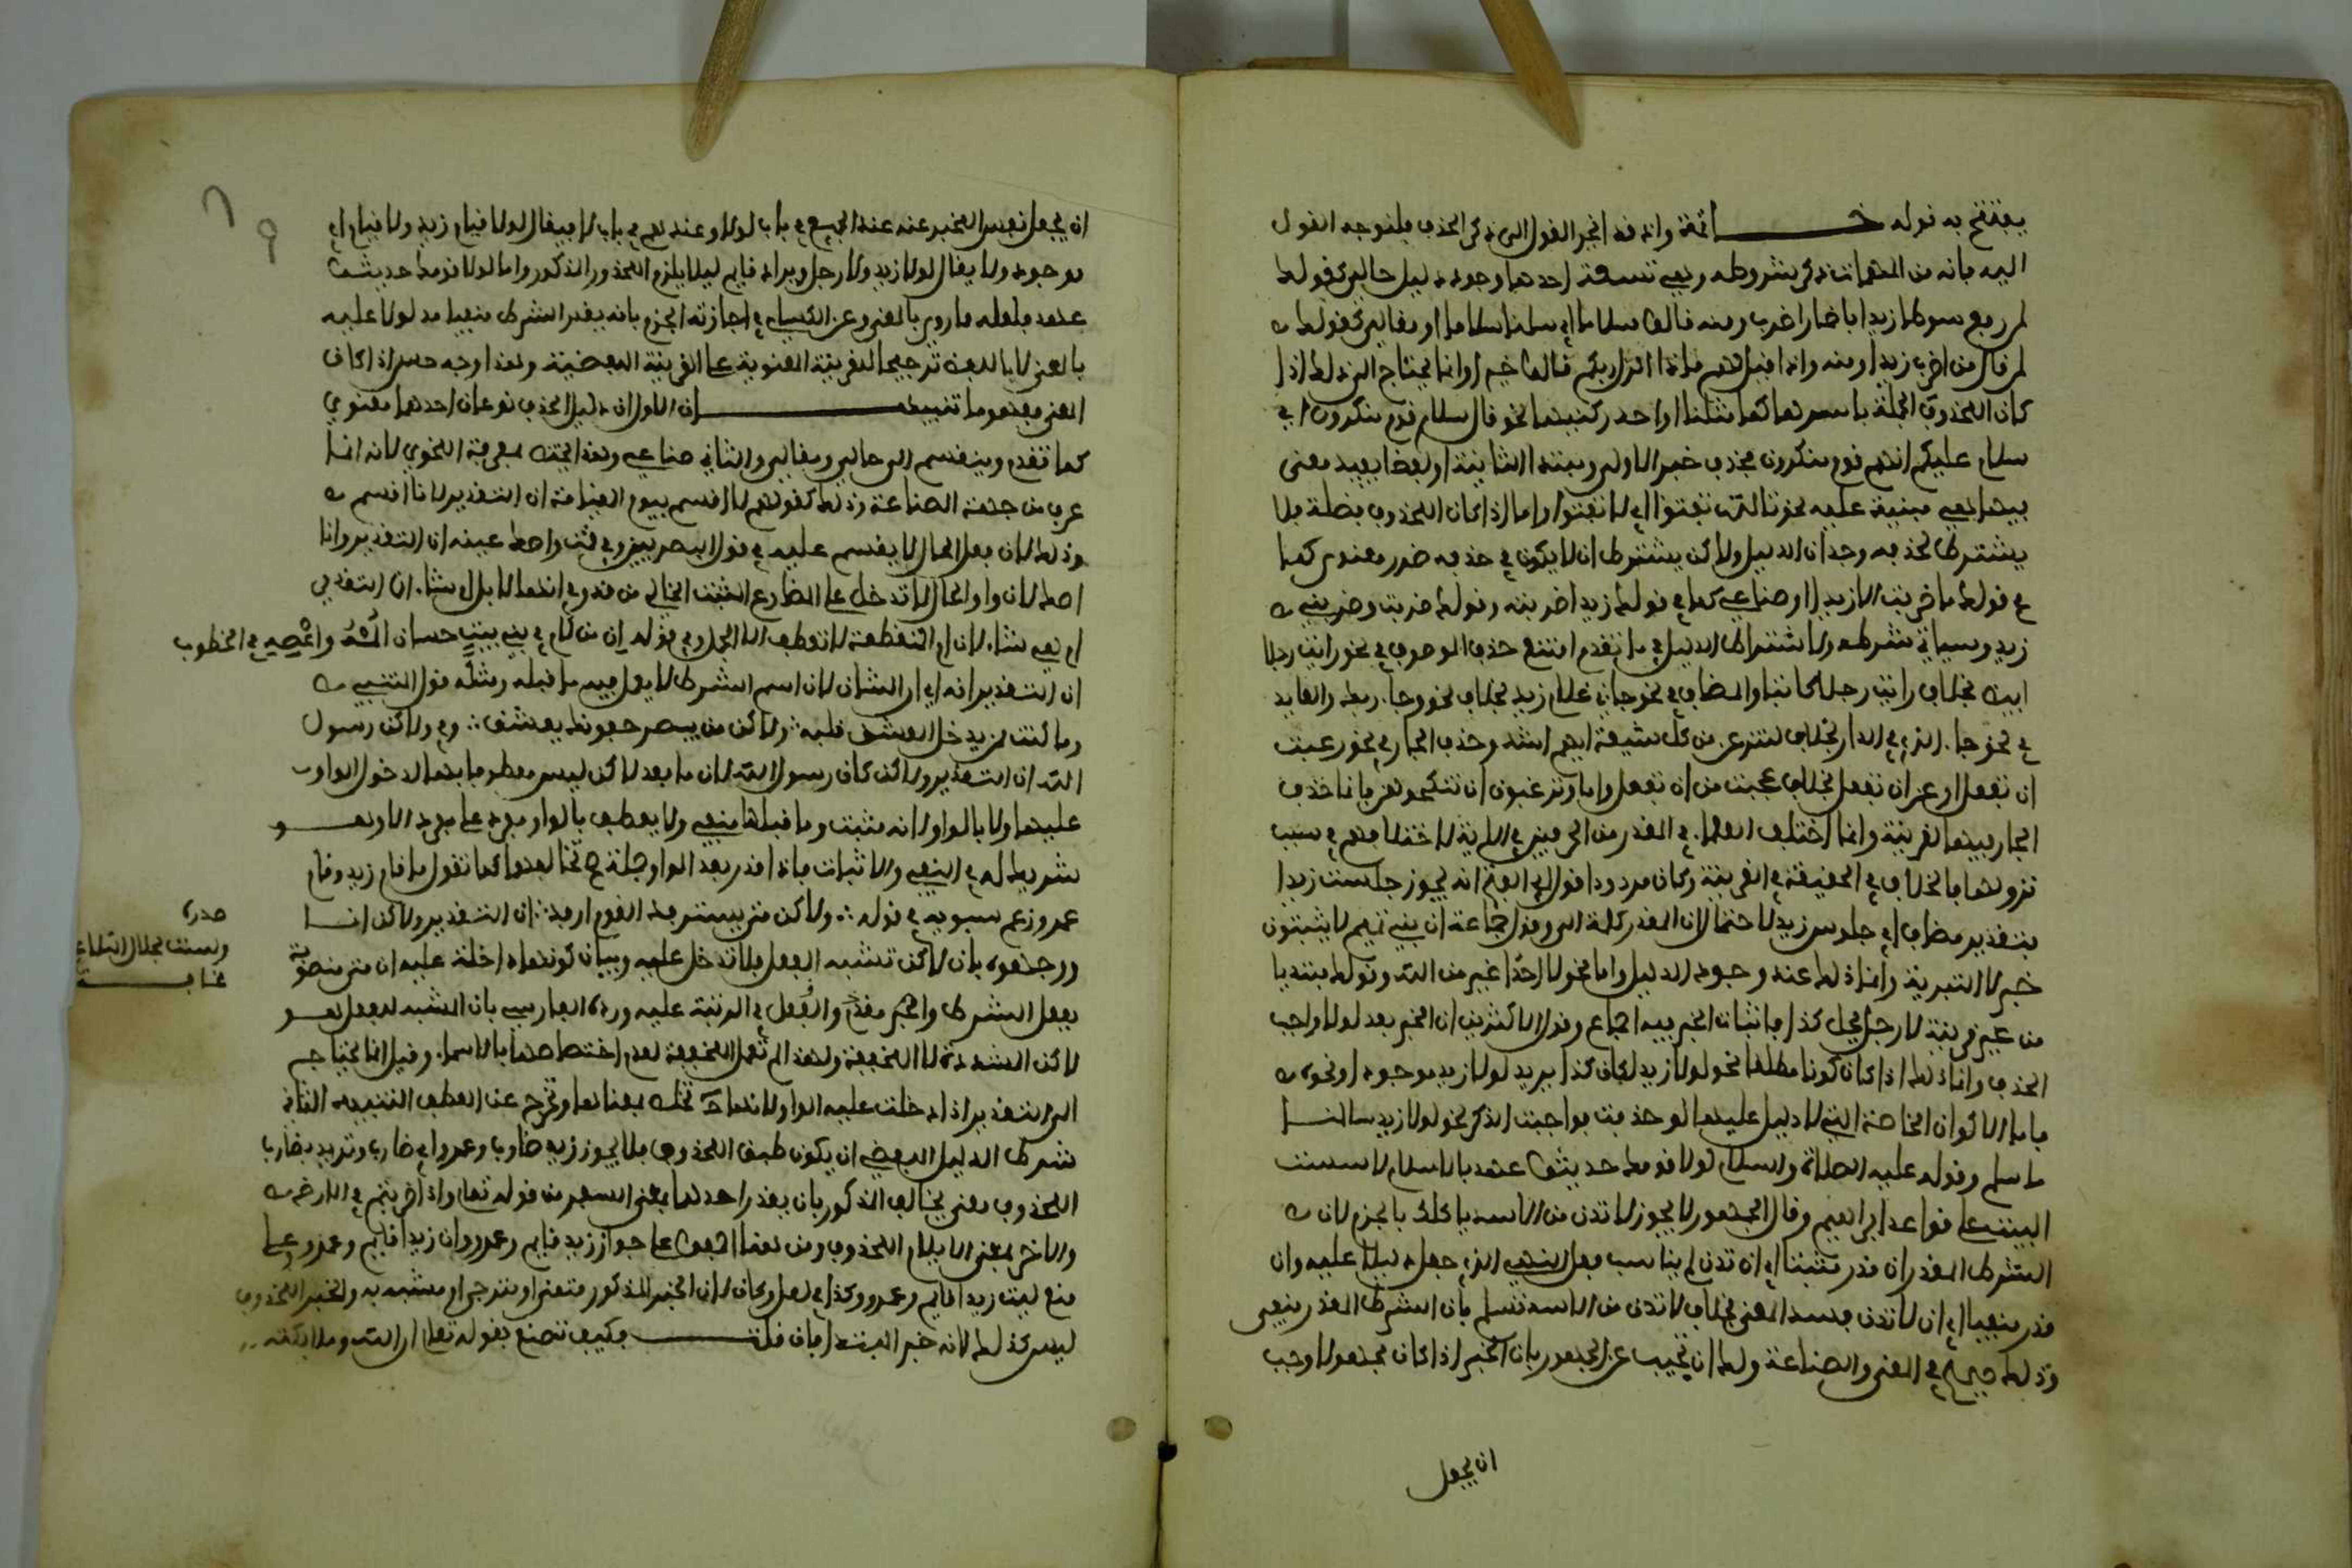 يفتتح به قوله خـــــاتمة واذ قد انجر القول الى ذكر الحذف فلنوجه القول
اليه فانه من المهمات ذكر شروطه وهي تسعة احدها وجود دليل حالي كقولك
لمن رفع سوطا زيدا باضمار اضرب ومنه قالوا سلاما اي سلمنا سلاما او مقالي كقولك
لمن قال من اضرب زيدا ومنه واذا قيل لهم ماذا انزل ربكم قالوا خيرا وانما يحتاج الى ذلك اذا
كان المحذوف الجملة باسرها كما مثلنا او احد ركنيها نحو قال سلام قوم منكرون اي
سلام عليكم انتم قوم منكرون فحذف خبر الاولى ومبتدا الثانية او لفظا يفيد معنى
فيها هي مبنية عليه نحو تالله تفتؤا اي لا تفتؤا واما اذا كان المحذوف فضلة فلا
يشترط لحذفه وجدان الدليل ولاكن يشترط ان لا يكون في حذفه ضرر معنوي كما
في قولك ما ضربت الا زيدا او صناعي كما في قولك زيد اضربته وقولك ضربت وضربني
زيد وسياتي شرطه ولاشتراط الدليل فيما تقدم امتنع حذف الموصوف في نحو رايت رجلا
ابيض بخلاف رايت رجلا كاتبا والمضاف في نحو جاءني غلام زيد بخلاف نحو وجاء ربك والعايد
في نحو جاء الذي في الدار بخلاف لننزعن من كل شيعة ايهم اشد وحذف الجار في نحو رغبت
ان تفعل او عن ان تفعل بخلاف عجبت من ان تفعل واما وترغبون ان تنكحوهن فانما حذف
الجار فيها لقرينة وانما اختلف العلماء في المقدر من الحرفين في الاية لاختلافهم في سبب
نزولها فالخلاف في الحقيقة في القرينة وكان مردودا قول ابي الفتح انه يجوز جلست زيدا
بتقدير مضاف اي جلوس زيد لاحتمال ان المقدر كلمة الى وقول جماعة ان بني تميم لا يثبتون
خبر لا التبرية وانما ذلك عند وجود الدليل واما نحو لا احدا غير من الله وقولك مبتديا
من غير قرينة لا رجل يفعل كذا فاثبات الخبر فيه اجماع وقول الاكثرين ان الخبر بعد لولا واجب
الحذف وانما ذلك اذا كان كونا مطلقا نحو لولا زيد لكان كذا يريد لولا زيد موجود او نحوه
فاما الاكوان الخاصة التي لا دليل عليها لو حذفت فواجبت الذكر نحو لولا زيد سالمنا
ما سلم وقوله عليه الصلاة والسلام لولا قومك حديثوا عهد بالاسلام لاسست
البيت على قواعد ابراهيم وقال الجمهور لا يجوز لا تدن من الاسد ياكلك بالجزم لان
الشرط المقدر ان قدر مثبتا اي ان تدن لم يناسب فعل النهي الذي جعل دليلا عليه وان
قدر منفيا اي ان لا تدن فسد المعنى بخلاف لا تدن من الاسد تسلم فان الشرط المقدر منفي
وذلك صحيح في المعنى والصناعة ولك ان تجيب عن الجمهور بان الخبر اذا كان مجهولا وجب
ان يجعل
ان يجعل نفس المخبر عنه عند الجميع في باب لولا وعند تميم في باب لا فيقال لولا قيام زيد ولا قيام اي
موجود ولا يقال لولا زيد ولا رجل ويراد قايم ليلا يلزم المحذور المذكور واما لولا قومك حديثوا
عهد فلعله مما روي بالمعنى وعن الكسايي في اجازته الجزم بانه يقدر الشرط منفيا مدلولا عليه
بالمعنى لا باللفظ ترجيحا للقرينة المعنوية على القرينة اللفظية وهذا وجه حسن اذا كان
المعنى مفهوما تنبيهــــــان الاول ان دليل الحذف نوعان احدهما معنوي
كما تقدم وينقسم الى حالي ومقالي والثاني صناعي وهذا يختص بمعرفة النحوي لانه انما
عرف من جهة الصناعة وذلك كقولهم لا اقسم بيوم القيامة ان التقدير لانا اقسم
وذلك لان فعل الحال لا يقسم عليه في قول البصريين وفي قمت واصك عينه ان التقدير وانا
اصك لان واو الحال لا تدخل على المضارع المثبت الخالي من قد وفي انها لابل ام شاء ان التقدير
ام هي شاء لان ام المنقطعة لا تعطف الا الجمل وفي قوله ان من لام في بني بنت حسان المه واعصه في الخطوب
ان التقدير انه اي ان الشان لان اسم الشرط لا يعمل فيه ما قبله ومثله قول المتنبي
وما كنت ممن يدخل العشق قلبه ∴ ولاكن من يبصر جفونك يعشق ∴ وفي ولاكن رسول
الله ان التقدير ولاكن كان رسول الله لان ما بعد لاكن ليس معطوفا بها لدخول الواو
عليها ولا بالواو لانه مثبت وما قبلها منفي ولا يعطف بالواو مفرد على مفرد الا وهــو
شريكه في النفي والاثبات فاذا قدر بعد الواو جملة صح تخالفهما كما تقول ما قام زيد وقام
عمرو وزعم سيبويه في قوله ∴ ولاكن متى يسترفد القوم ارفد ∴ ان التقدير ولاكن انــا
ووجهوه بان لاكن تشبه الفعل فلا تدخل عليه وبيان كونها داخلة عليه ان متى منصوبة
بفعل الشرط والخبر مقدم والفعل في الرتبة عليه ورده الفارسي بان المشبه للفعل هــو
لاكن المشددة لا المخففة ولهذا لم تعمل المخففة لعدم اختصاصها بالاسماء وقيل انما يحتاج
الى التقدير اذا دخلت عليه الواو لانها حٓ تخلص بمعناها وتخرج عن العطف التنبيه الثاني
شرط الدليل اللفظي ان يكون طبق المحذوف فلا يجوز زيد ضارب وعمرو اي ضارب وتريد بضارب
المحذوف معنى يخالف المذكور بان يقدر احدهما بمعنى السفر من قوله تعلى واذا ضربتم في الارض
والاخر بمعنى الايلام المحذوف ومن هنا اجمعوا على جواز زيد قايم وعمرو وان زيدا قايم وعمرو وعلى
منع ليت زيدا قايم وعمرو وكذا في لعل وكان لان الخبر المذكور متمنى او مترجى او مشبه به والخبر المحذوف
ليس كذلك لانه خبر المبتدا فان قلتـــــ فكيف تصنع بقوله تعلى ان الله وملائكته
صدره
ولست بحلال التلاع
مخافــــة